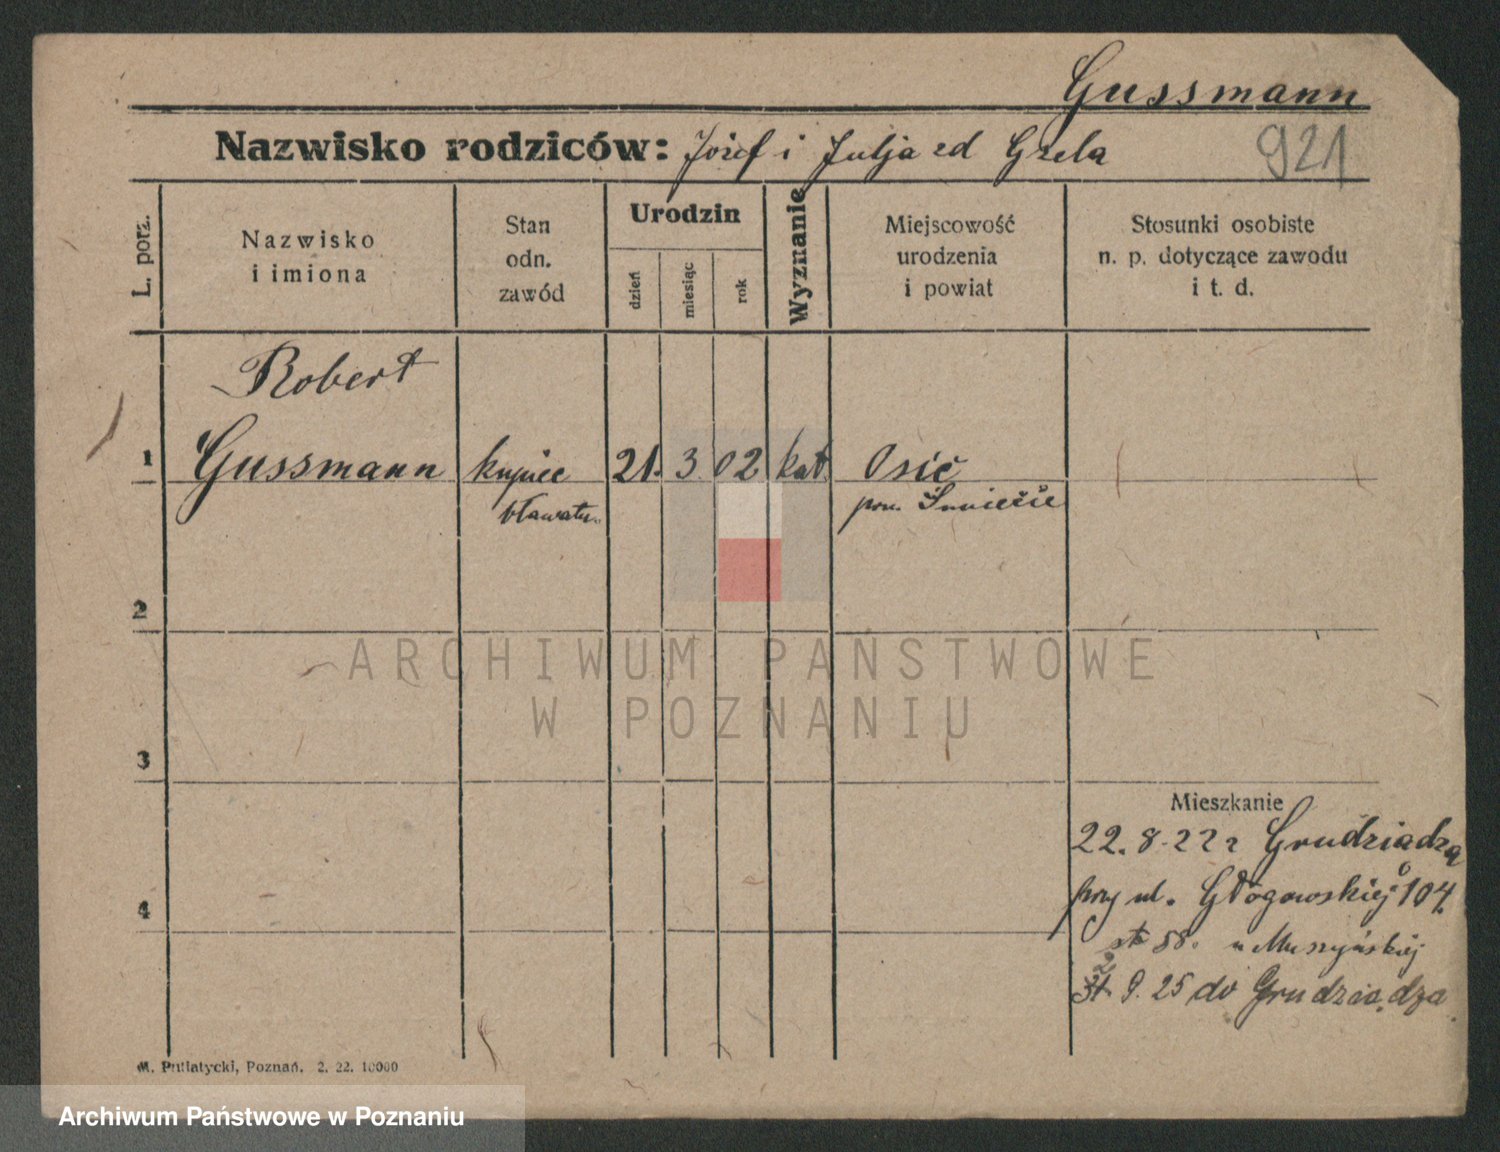 Gussmann
921
Nazwisko rodziców: Józef i Julja zd Grela
L. porz.
Nazwisko
i imiona
Stan
odn.
zawód
Urodzin
dzień
miesiąc
rok
Wyznanie
Miejscowość
urodzenia
i powiat
Stosunki osobiste
n. p. dotyczące zawodu
i t. d.
Robert
1 Gussmann kupiec 21. 3 02 kat. Osie
bławatn. pow.
2
3
4
Mieszkanie
22. 8. 22 r Grudziądza
przy ul. Głogowskiej 104.
u Muszyńskiej
9. 25 do Grudziądza
M. Putiatycki, Poznań. 2. 22. 10000
ARCHIWUM PAŃSTWOWE
W POZNANIU
Archiwum Państwowe w Poznaniu